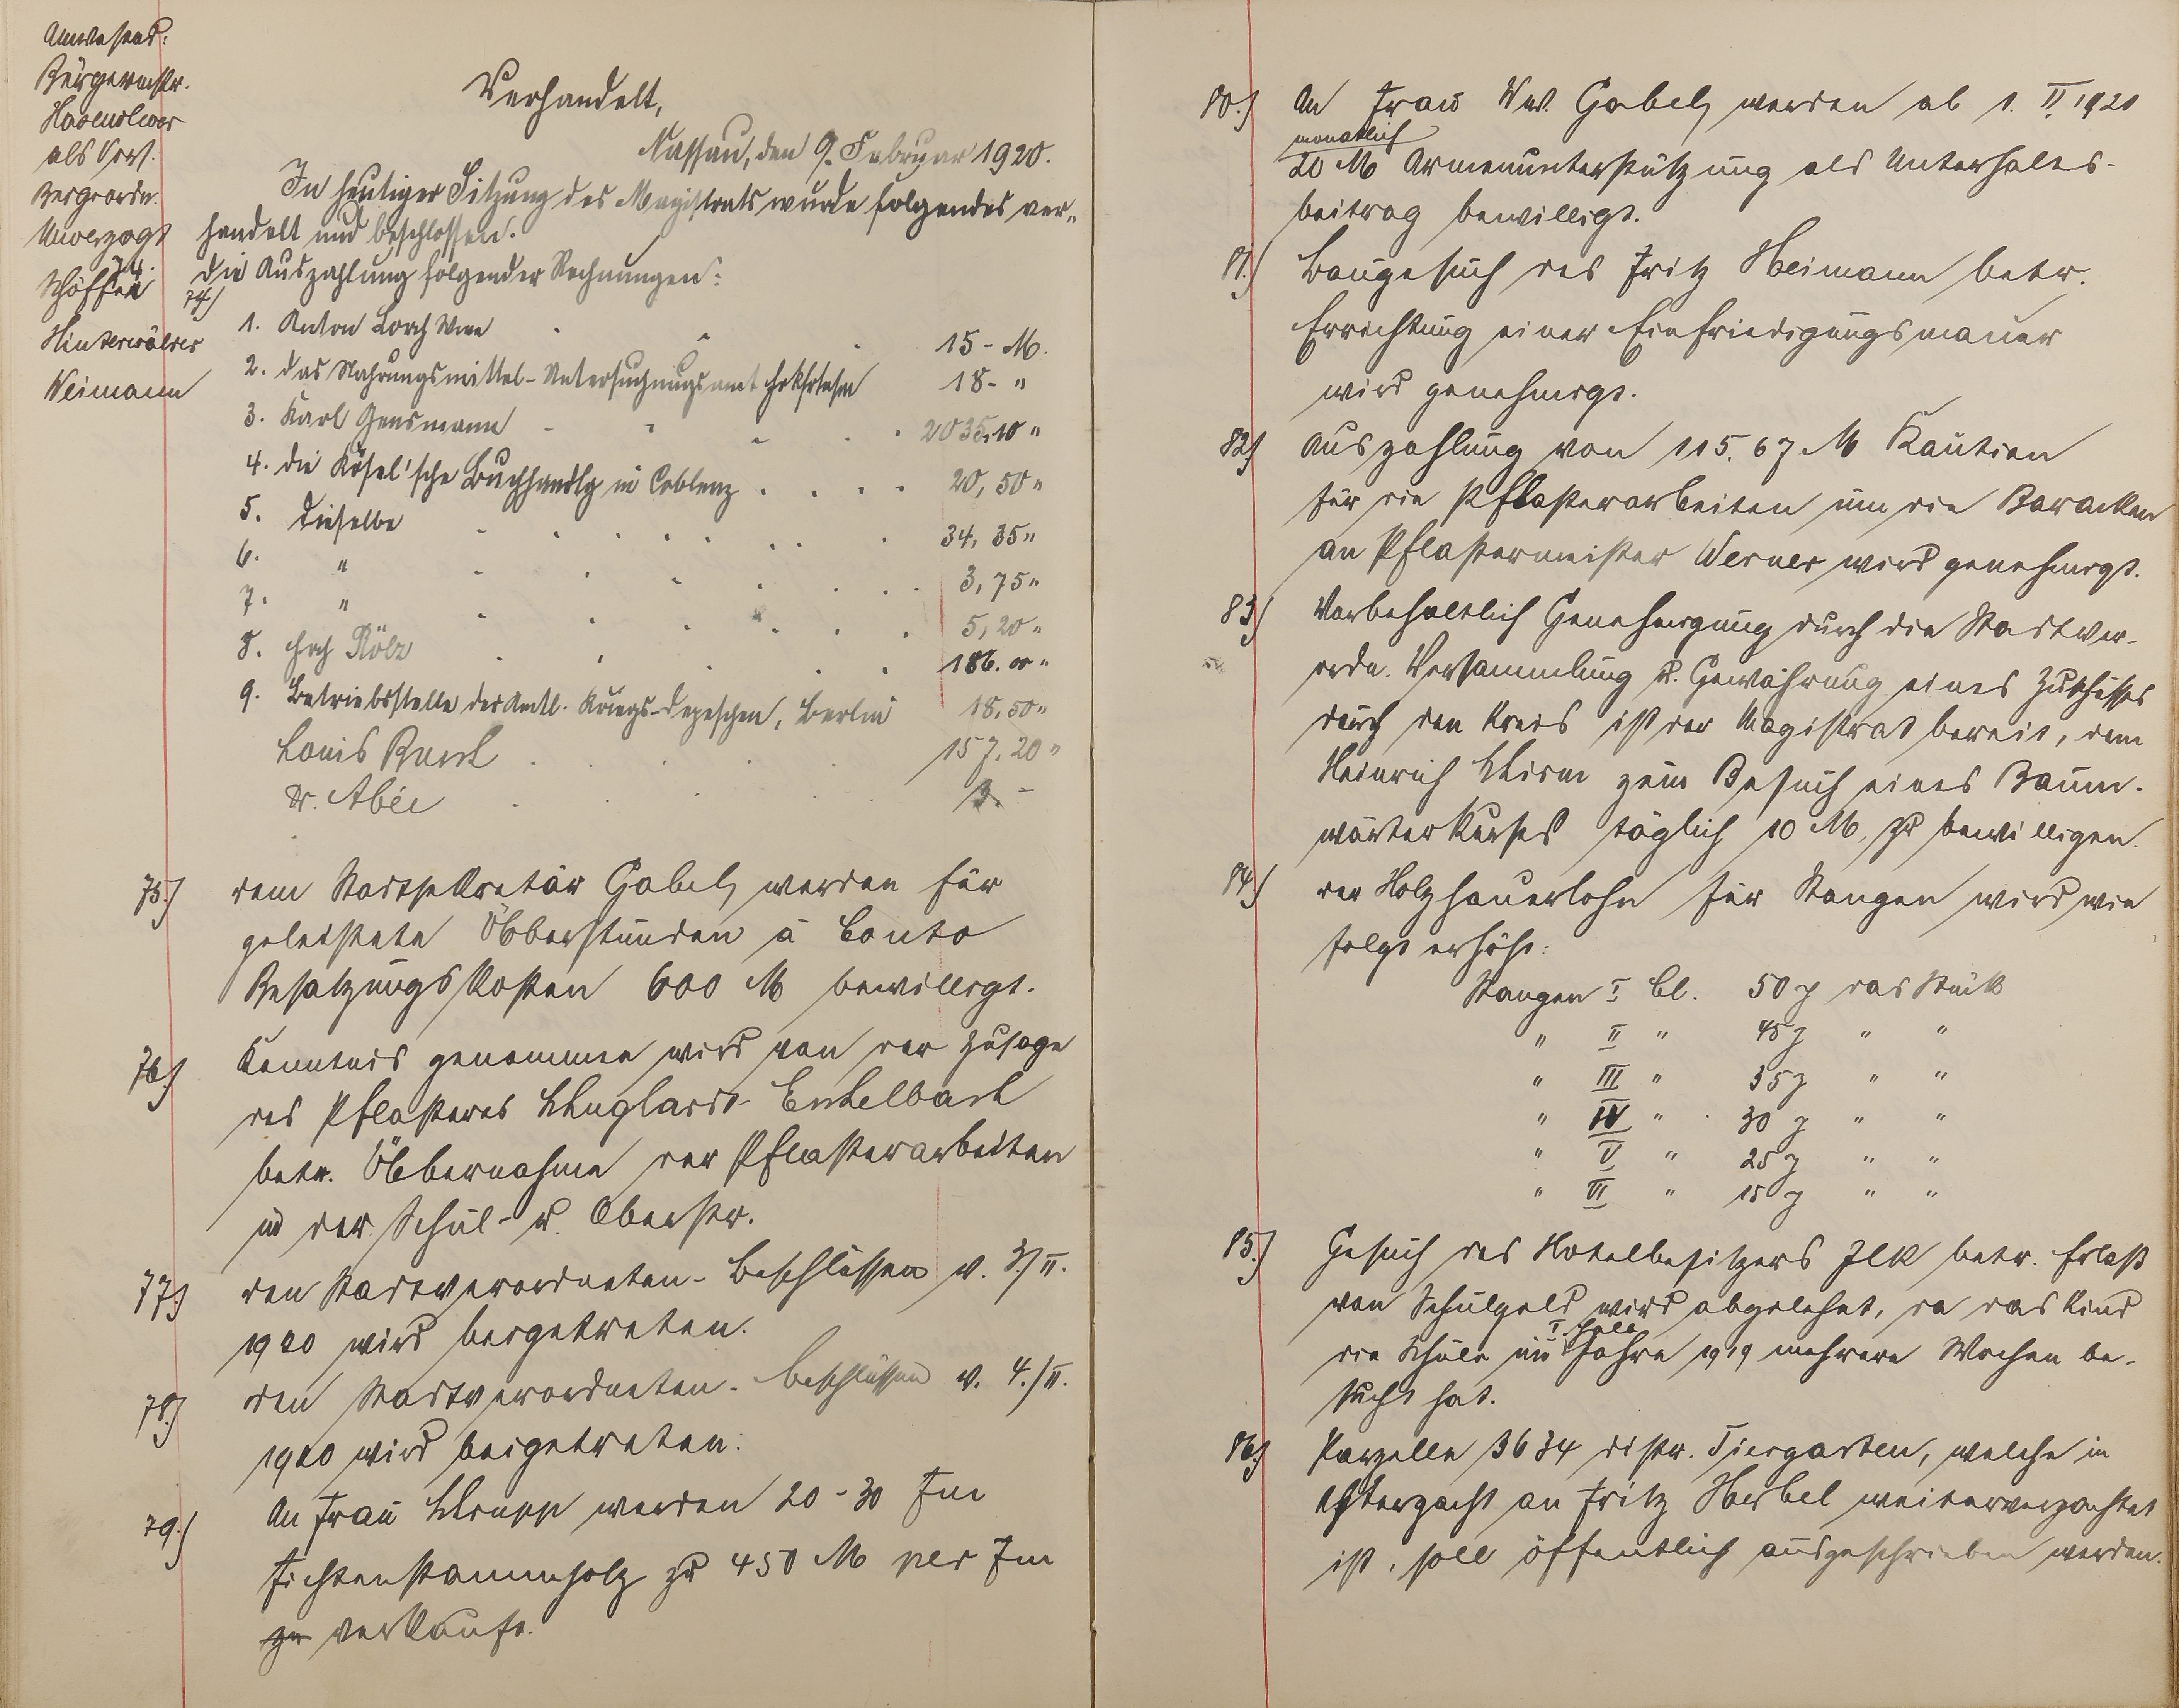 Anwesend:
Bürgermstr.
Hasenclever
als Vors.
Beigeordn.
Unverzagt
Schöffen
Hinterwälder
Weimann
Verhandelt,
Nassau, den 9. Februar 1920.
In heutiger Sitzung des Magistrats wurde folgendes ver-
handelt und beschlossen:
74.
die Auszahlung folgender Rechnungen:
74)
1. Anton Lorch Wwe 15 - M.
2. das Nahrungsmittel-Untersuchungsamt 18 - "
3. Karl Gensmann 2035,10 "
4. die Kösel'sche Buchhandlg in Coblenz 20,50 "
5. dieselbe 34,35 "
6. " 3,75 "
7. " 5,20 "
8. Hrch Rölz 186.00 "
9. Betriebsstelle der Amtl. Kriegs-Depeschen, Berlin 18,50 "
Louis Busch 157.20 "
Dr. Abée 3. -
75.) dem Stadtsekretär Gabel werden für
geleistete Überstunden à Conto
Besatzungskosten 600 M bewilligt.
76.) Kenntnis genommen wird von der Zusage
des Pflasterers Enkelbach
betr. Übernahme der Pflasterarbeiten
in der Schul- u. Oberstr.
77.) den Stadtverordneten-Beschlüssen v. 3/II.
1920 wird beigetreten.
78.) den Stadtverordneten-Beschlüssen v. 4./II.
1920 wird beigetreten.
79.) An Frau werden 20-30 Fm
Fichtenstammholz zu 450 M per Fm
zu verkauft.
80.) An Frau Ww. Gabel werden ab 1. II. 1920
monatlich
20 M Armenunterstützung als Unterhalts-
beitrag bewilligt.
81.) Baugesuch des Fritz Heimann betr.
Errichtung einer Einfriedigungsmauer
wird genehmigt.
82.) Auszahlung von 115.67 M Kaution
für die Pflasterarbeiten um die Baracken
an Pflastermeister Werner wird genehmigt.
83.) Vorbehaltlich Genehmigung durch die Stadtver-
ordn. Versammlung u. Gewährung eines Zuschusses
durch den Kreis ist der Magistrat bereit, dem
Heinrich zum Besuch eines Baum-
wärterkurses täglich 10 M. zu bewilligen.
84.) der Holzhauerlohn für Stangen wird wie
folgt erhöht:
Stangen I Cl. 50 ₰ das Stück
" II " 45 ₰ " "
" III " 35 ₰ " "
" IV " 30 ₰ " "
" V " 25 ₰ " "
" VI " 15 ₰ " "
85.) Gesuch des Hotelbesitzers Ilk betr. Erlaß
von Schulgeld wird abgelehnt, da das Kind
die Schule im I. Halb Jahre 1919 mehrere Wochen be-
sucht hat.
86.) Parzelle 3634 distr. Tiergarten, welche in
Afterpacht an Fritz Herbel weiterverpachtet
ist, soll öffentlich ausgeschrieben werden.